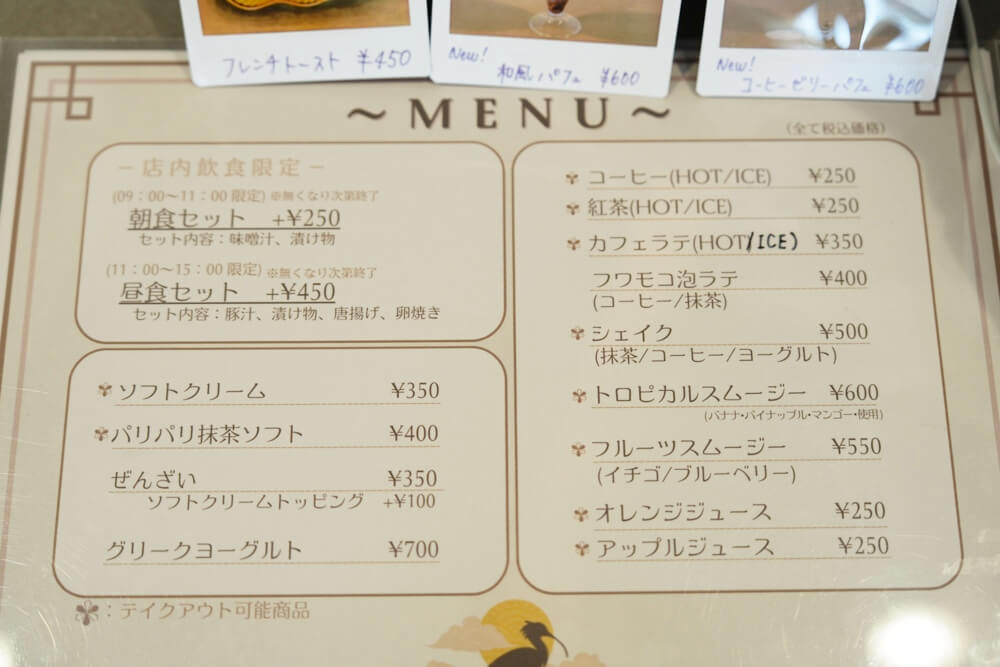 フレンチトースト ¥450
New!
和風パフェ ¥600
New!
コーヒーゼリーパフェ ¥600
～MENU～
(全て税込価格)
－店内飲食限定－
(09：00～11：00 限定) ※無くなり次第終了
朝食セット +¥250
セット内容：味噌汁、漬け物
(11：00～15：00 限定) ※無くなり次第終了
昼食セット +¥450
セット内容：豚汁、漬け物、唐揚げ、卵焼き
ソフトクリーム ¥350
パリパリ抹茶ソフト ¥400
ぜんざい ¥350
ソフトクリームトッピング +¥100
グリークヨーグルト ¥700
コーヒー(HOT/ICE) ¥250
紅茶(HOT/ICE) ¥250
カフェラテ(HOT/ICE) ¥350
フワモコ泡ラテ ¥400
(コーヒー/抹茶)
シェイク ¥500
(抹茶/コーヒー/ヨーグルト)
トロピカルスムージー ¥600
(バナナ・パイナップル・マンゴー・使用)
フルーツスムージー ¥550
(イチゴ/ブルーベリー)
オレンジジュース ¥250
アップルジュース ¥250
：テイクアウト可能商品